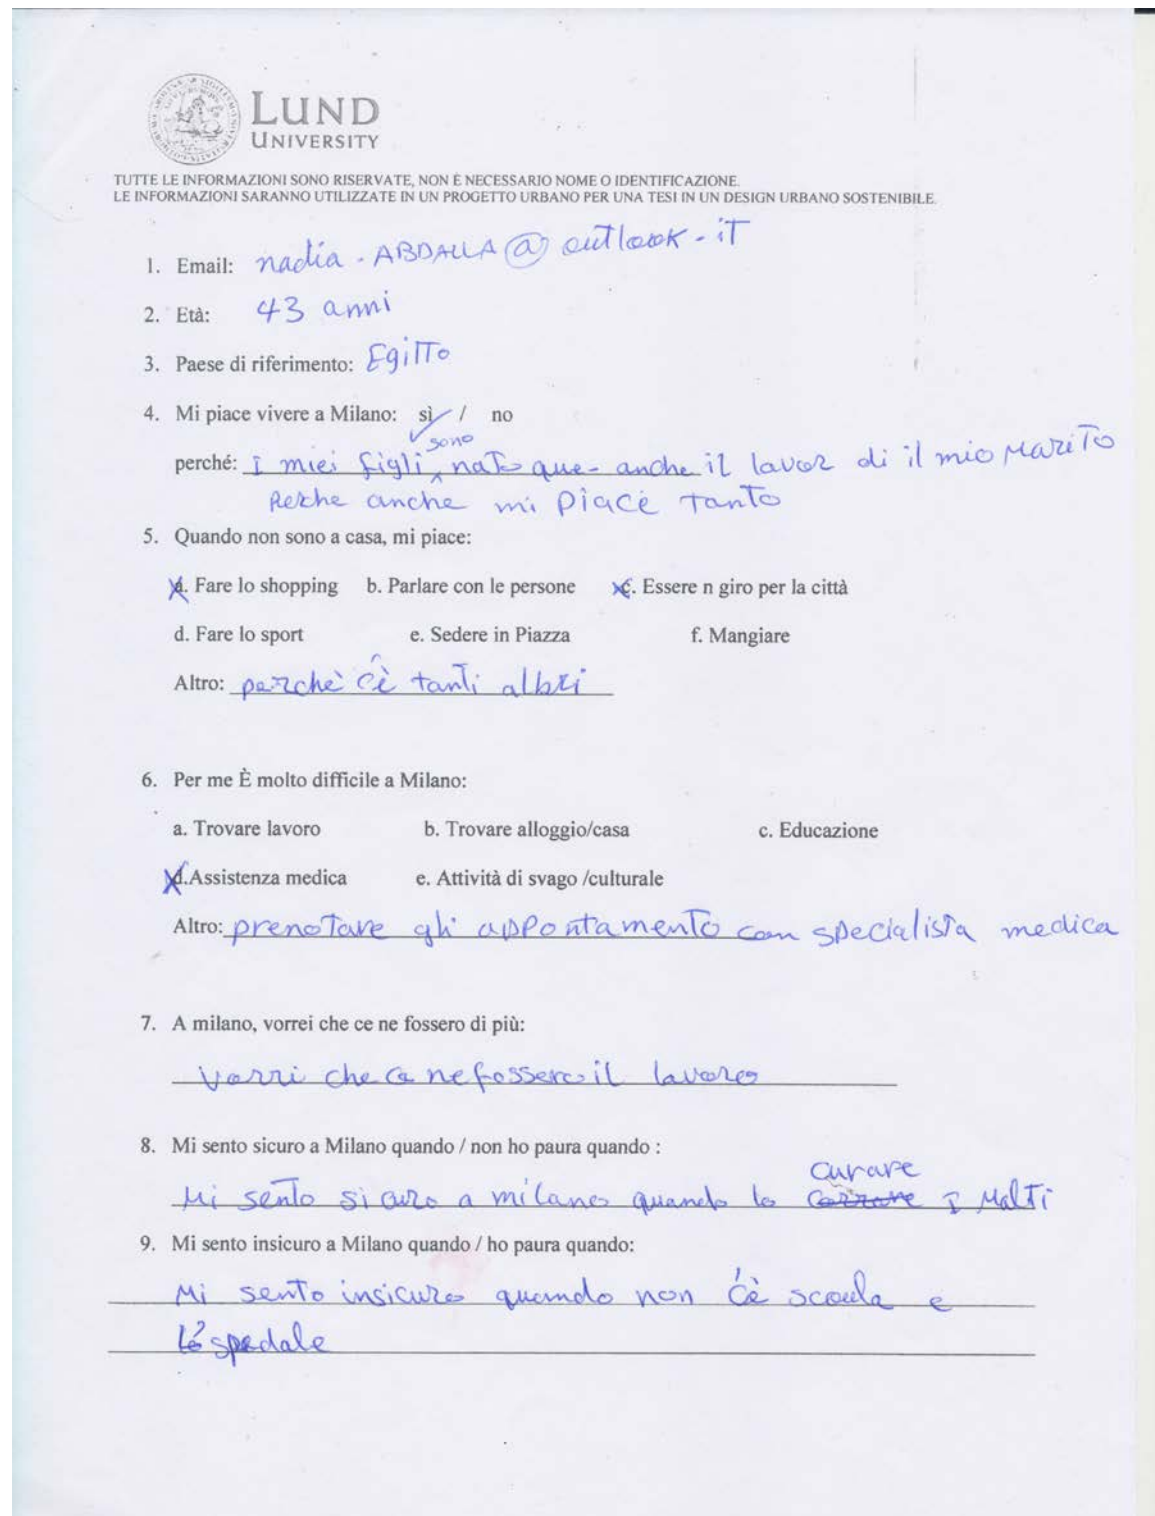 LUND
UNIVERSITY
TUTTE LE INFORMAZIONI SONO RISERVATE, NON È NECESSARIO NOME O IDENTIFICAZIONE.
LE INFORMAZIONI SARANNO UTILIZZATE IN UN PROGETTO URBANO PER UNA TESI IN UN DESIGN URBANO SOSTENIBILE.
1. Email: nadia-ABDALLA@outlook-iT
2. Età: 43 anni
3. Paese di riferimento: EgiTTo
4. Mi piace vivere a Milano: sì / no
sono
perché: I miei figli nato que- anche il lavor di il mio MariTo
Perche anche mi Piace tanto
5. Quando non sono a casa, mi piace:
a. Fare lo shopping b. Parlare con le persone c. Essere n giro per la città
d. Fare lo sport e. Sedere in Piazza f. Mangiare
Altro: perchè c'è tanti albri
6. Per me È molto difficile a Milano:
a. Trovare lavoro b. Trovare alloggio/casa c. Educazione
d. Assistenza medica e. Attività di svago /culturale
Altro: prenotare gli appontamento con specialista medica
7. A milano, vorrei che ce ne fossero di più:
Vorri che ce ne fossero il lavoro
8. Mi sento sicuro a Milano quando / non ho paura quando :
curare
Mi sento sicuro a milano quando lo I MalTi
9. Mi sento insicuro a Milano quando / ho paura quando:
Mi sento insicuro quando non c'è scoula e
l'ospedale